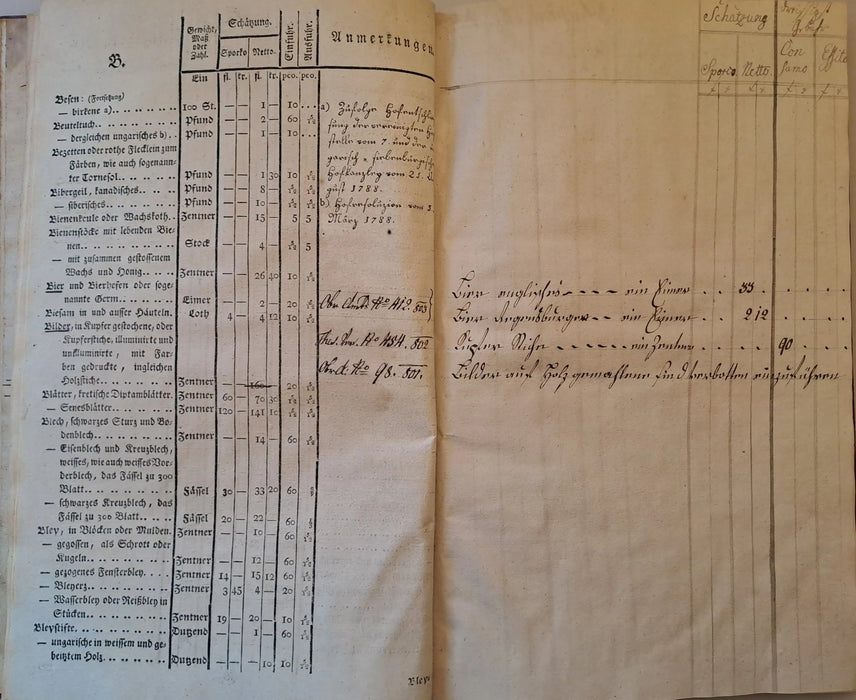 B.
Gewicht, Maß oder Zahl.
Schätzung.
Sporko
Netto.
Einfuhr.
Ausfuhr.
Anmerkungen
Ein fl. kr. fl. kr. pco. pco.
Besen: (Fortsetzung)
— birkene a) .. 100 St. — — 1 — 10 ...
Beuteltuch .. Pfund — — 2 — 60 5/12
— dergleichen ungarisches b) .. Pfund — — 1 — 10 ...
Bezetten oder rothe Flecklein zum
Färben, wie auch sogenann-
ter Tornesol .. Pfund — — 1 30 10 5/12
Bibergeil, kanadisches .. Pfund — — 8 — 5/12
— siberisches .. Pfund — — 10 — 5/12
Bienenkeule oder Wachskoth .. Zentner — — 15 — 5 5
Bienenstöcke mit lebenden Bie-
nen .. Stock — — 4 — 5/12 5
— mit zusammen gestossenem
Wachs und Honig .. Zentner — — 26 40 10 5/12
Bier und Bierhefen oder soge-
nannte Germ .. Eimer — — 2 — 20 5/12
Biesam in und ausser Häuteln. Loth 4 — 4 12 10 5/12
Bilder, in Kupfer gestochene, oder
Kupferstiche, illuminirte und
unilluminirte, mit Far-
ben gedruckt, ingleichen
Holzstiche .. Zentner — — 160 — 20 5/12
Blätter, kretische Diptamblätter. Zentner 60 — 70 30 10 5/12
— Senesblätter .. Zentner 120 — 141 10 5/12
Blech, schwarzes Sturz und Bo-
denblech .. Zentner — — 14 — 60 5/12
— Eisenblech und Kreuzblech,
weisses, wie auch weisses Vor-
derblech, das Fässel zu 300
Blatt .. Fässel 30 — 33 20 60
— schwarzes Kreuzblech, das
Fässel zu 300 Blatt .. Fässel 20 — 22 — 60
Bley, in Blöcken oder Mulden. Zentner — — 10 — 60 5/12
— gegossen, als Schrott oder
Kugeln .. Zentner — — 12 — 60 5/12
— gezogenes Fensterbley .. Zentner 14 — 15 12 60 5/12
— Bleyerz .. Zentner 3 45 4 — 20 5/12
— Wasserbley oder Reißbley in
Stücken .. Zentner 19 — 20 — 10 5/12
Bleystifte .. Dutzend — — 1 — 60 5/12
— ungarische in weissem und ge-
beitztem Holz .. Dutzend — — — 10 10 5/12
a) Zufolge Hofentschlie-
ßung der vereinigten Hof-
stelle vom 7. und der
garisch- siebenbürgischen
Hofkanzley vom 21.
gust 1788.
b) Hofresoluzion vom
März 1788.
No 412. 803
No 484. 802
No 98. 801.
Bley
Schätzung
Sporco. Netto.
Con
sumo
Essito
Bier englisches - - - - ein Eimer . . 33
Bier Regensburger - - ein Eimer . . 2 12
Kupfer Stiche - - - - - - ein Zentner . . . . 90
Bilder auf Holz gemahlene sind verbotten einzuführen